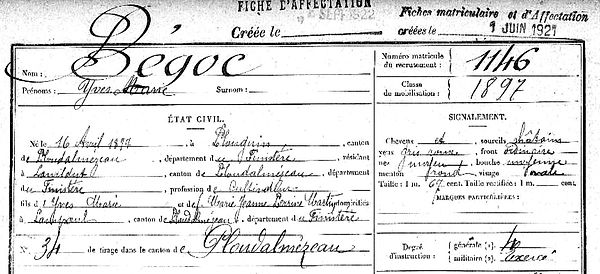 FICHE D'AFFECTATION
Créée le SEPT 1922
Fiches matriculaire et d'Affectation
créées le 1 JUIN 1921
Nom : Bégoc
Prénoms : Yves Marie Surnom :
Numéro matricule du recrutement : 1146
Classe de mobilisation : 1897
ÉTAT CIVIL.
Né le 16 Avril 1877, à Plouguin, canton
de Ploudalmézeau, département du Finistère, résidant
à Lanildut, canton de Ploudalmézeau, département
du Finistère, profession de Cultivateur
fils d'Yves Marie et de Marie Jeanne Perrine domiciliés
à canton de Ploudalmézeau, département du Finistère
N° 34 de tirage dans le canton de Ploudalmézeau
SIGNALEMENT.
Cheveux et sourcils châtains
yeux gris front ordinaire
nez moyen, bouche moyenne
menton rond visage ovale
Taille : 1 m. 67 cent. Taille rectifiée : 1 m. cent.
MARQUES PARTICULIÈRES :
Degré d'instruction : générale (1).
militaire (2). exercé